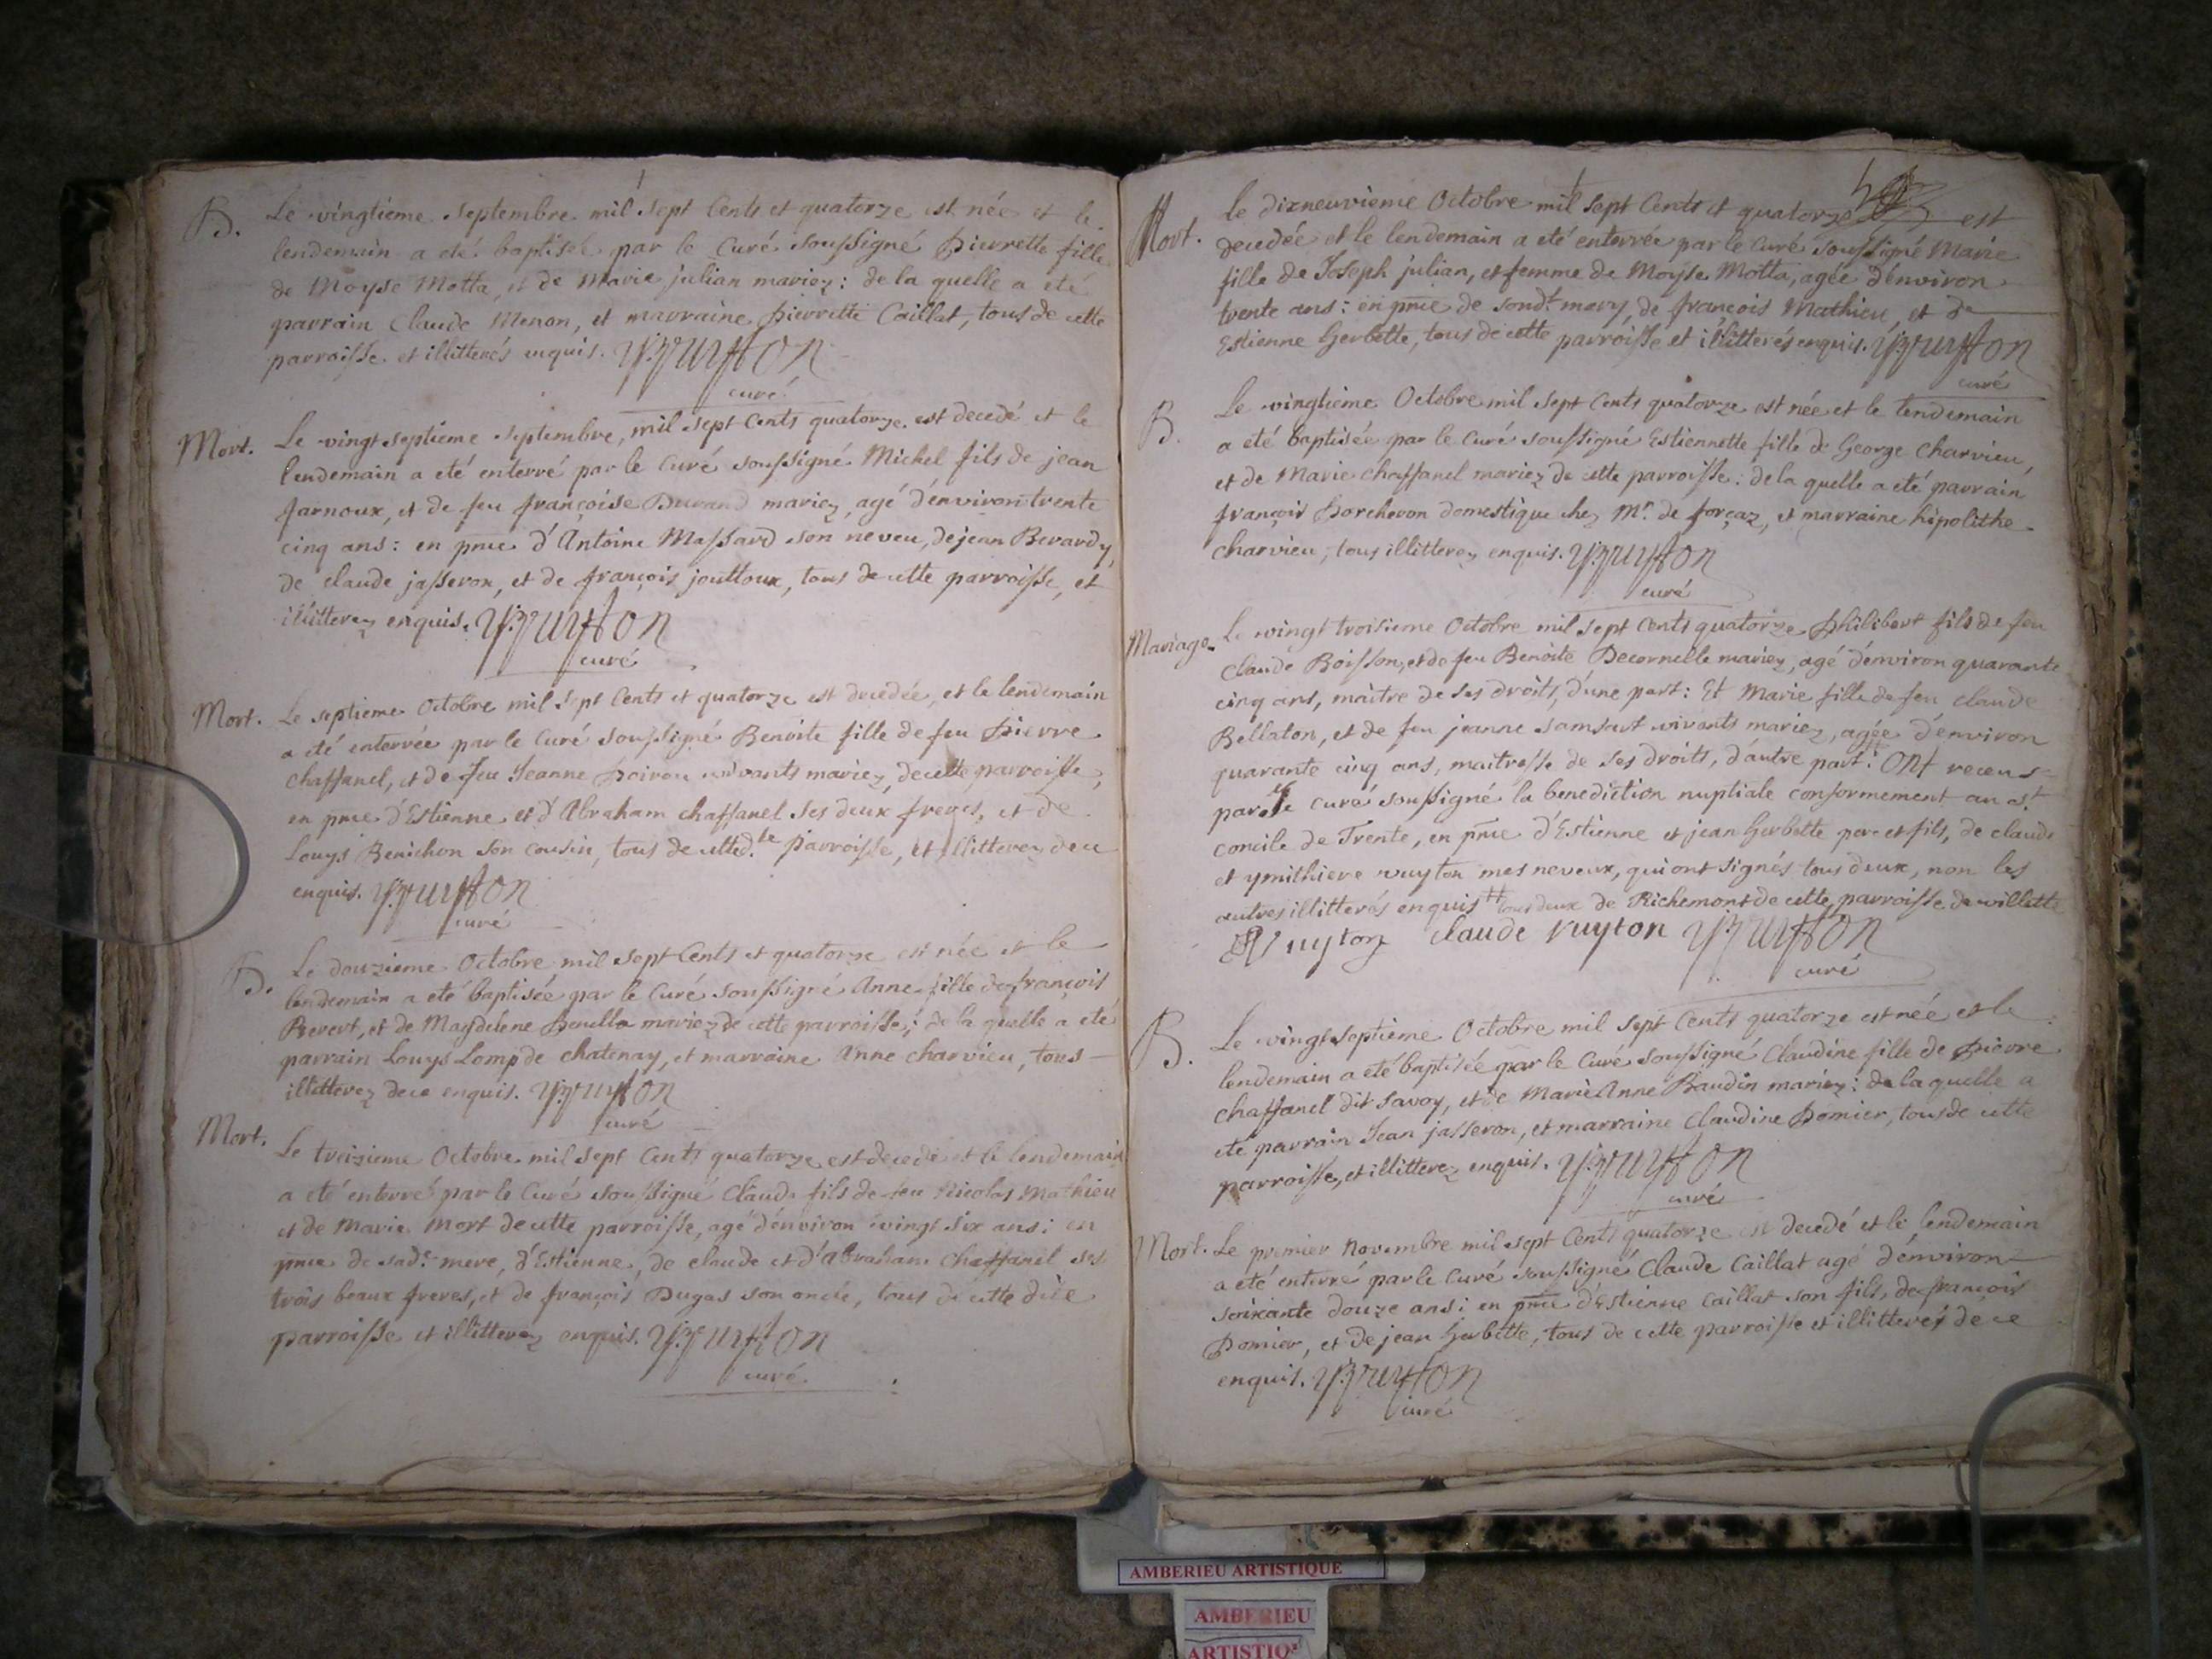 B. Le vingtieme septembre mil sept Cents et quatorze est née et le
lendemain a eté baptisée par le Curé soussigné Pierrette fille
de Moyse Motta, et de Marie julian mariez: de la quelle a eté
parrain Claude Menon, et marraine Pierrette Caillat, tous de cette
parroisse et illitterés enquis. Vuyton
curé
Mort. Le vingt septieme septembre, mil sept Cents quatorze est decedé et le
lendemain a eté enterré par le Curé soussigné Michel fils de jean
farnoux, et de feu françoise Durand mariez, agé d'environ trente
cinq ans: en pnce d'Antoine Massard son neveu, de jean Berardy,
de claude jasseron, et de françois jouttoux, tous de cette parroisse, et
illitterez enquis. Vuyton
curé
Mort. Le septieme Octobre mil sept Cents et quatorze est decedée, et le lendemain
a eté enterrée par le Curé soussigné Benoite fille de feu Pierre
chaffanel, et de feu Jeanne Poiron vivants mariez, de cette parroisse,
en pnce d'Estienne et d'Abraham chaffanel ses deux freres, et de
Louys Benichon son cousin, tous de cetted.te parroisse, et illitterez de ce
enquis. Vuyton
curé
B. Le douzieme Octobre mil sept Cents et quatorze est née et le
lendemain a eté baptisée par le Curé soussigné Anne fille de françois
Revert, et de Magdelene mariez de cette parroisse; de la quelle a eté
parrain Louys Lomp de chatenay, et marraine Anne charvieu, tous
illitterez de ce enquis. Vuyton
curé
Mort. Le treizieme Octobre mil sept Cents quatorze est decedé et le lendemain
a eté enterré par le Curé soussigné Claude fils de feu Nicolas Mathieu
et de Marie Mort de cette parroisse, agé d'environ vingt six ans: en
pnce de sad.e mere, d'Estienne, de claude et d'abraham Chaffanel ses
trois beaux freres, et de françois Dugas son oncle, tous de cette dite
parroisse et illitterez enquis. Vuyton
curé
Mort. le dixneuvieme Octobre mil sept Cents et quatorze est
decedée et le lendemain a eté enterrée par le Curé soussigné Marie
fille de Joseph julian, et femme de Moyse Motta, agée d'environ
trente ans: en pnce de sond.t mary, de françois Mathieu, et de
Estienne Gerbette, tous de cette parroisse et illitterés enquis. Vuyton
curé
B. Le vingtieme Octobre mil sept Cents quatorze est née et le lendemain
a eté baptisée par le Curé soussigné Estiennette fille de George Charvieu,
et de Marie chaffanel mariez de cette parroisse: de la quelle a eté parrain
françois Porcheron domestique chez Mr. de forçaz, et marraine hipolithe
charvieu, tous illitterez enquis. Vuyton
curé
Mariage. Le vingt troisieme Octobre mil sept Cents quatorze Philibert fils de feu
Claude Boisson, et de feu Benoite Decornelle mariez, agé d'environ quarante
cinq ans, maître de ses droits, d'une part: Et Marie fille de feu claude
Bellaton, et de feu jeanne samsaut vivants mariez, agée d'environ
quarante cinq ans, maitresse de ses droits, d'autre part: Ont receus
par le curé soussigné la benediction nuptiale conformement au st.
concile de Trente, en pnce d'Estienne et jean Gerbette pere et fils, de claude
et ymithiere vuyton mes neveux, qui ont signés tous deux, non les
autres illitterés enquis tous deux de Richemont de cette parroisse de villette
Vuyton Claude Vuyton Vuyton
curé
B. Le vingt septieme Octobre mil sept Cents quatorze est née et le
lendemain a eté baptisée par le Curé soussigné Claudine fille de Pierre
chaffanel dit savoy, et de Marie Anne Baudin mariez: de la quelle a
eté parrain Jean jasseron, et marraine Claudine Pomier, tous de cette
parroisse, et illitterez enquis. Vuyton
curé
Mort. Le premier Novembre mil sept Cents quatorze est decedé et le lendemain
a eté enterré par le Curé soussigné Claude Caillat agé d'environ
soixante douze ans: en pnce d'Estienne Caillat son fils, de françois
Pomier, et de jean Gerbette, tous de cette parroisse et illitterés de ce
enquis. Vuyton
curé
AMBERIEU ARTISTIQUE
AMBERIEU
ARTISTIQ